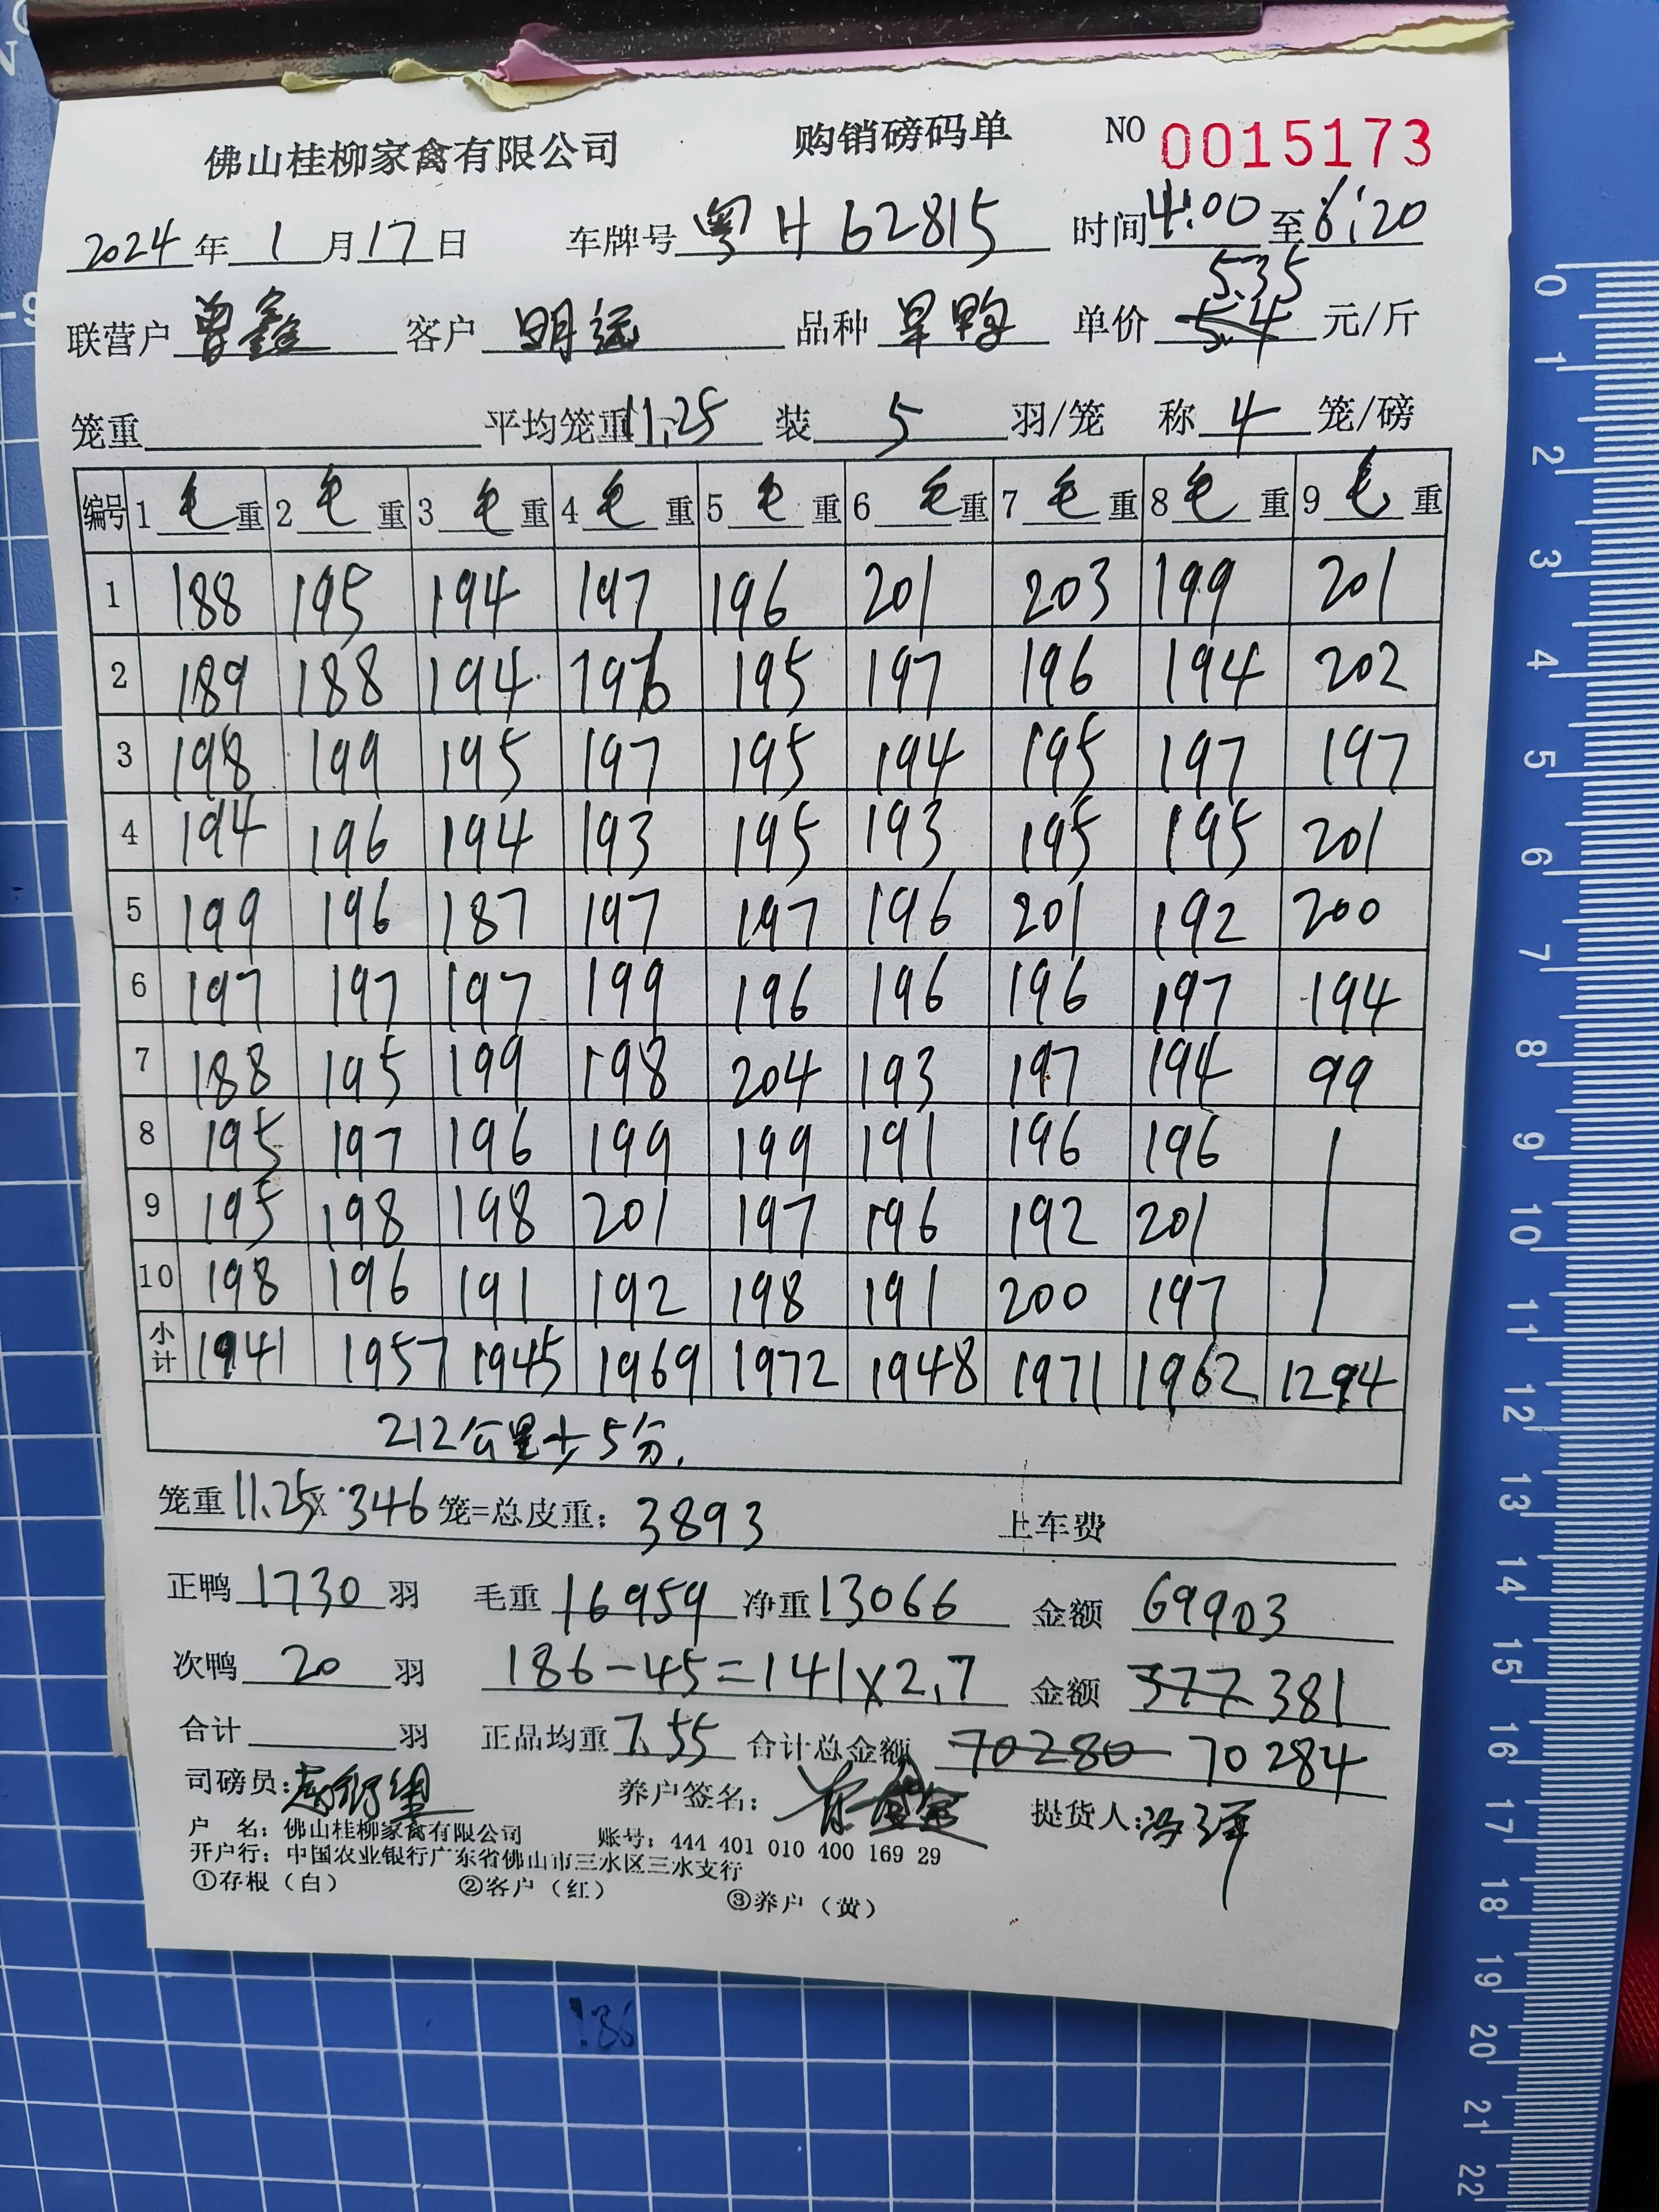 佛山桂柳家禽有限公司 购销磅码单 NO 0015173
2024年1月17日 车牌号粤H62815 时间4:00至6:20
5.35
联营户曾鑫 客户明远 品种旱鸭 单价5.4元/斤
笼重 平均笼重11.25 装5羽/笼 称4笼/磅
编号 1毛重 2毛重 3毛重 4毛重 5毛重 6毛重 7毛重 8毛重 9毛重
1 188 195 194 197 196 201 203 199 201
2 189 188 194 196 195 197 196 194 202
3 198 199 195 197 195 194 195 197 197
4 194 196 194 193 195 193 195 195 201
5 199 196 187 197 197 196 201 192 200
6 197 197 197 199 196 196 196 197 194
7 188 195 199 198 204 193 197 194 99
8 195 197 196 199 199 191 196 196
9 195 198 198 201 197 196 192 201
10 198 196 191 192 198 191 200 197
小计 1941 1957 1945 1969 1972 1948 1971 1962 1294
212公里少5分.
笼重11.25×346笼=总皮重: 3893 上车费
正鸭1730羽 毛重16959 净重13066 金额69903
次鸭20羽 186-45=141×2.7 金额377 381
合计 羽 正品均重7.55 合计总金额70280 70284
司磅员: 养户签名: 提货人:
户 名: 佛山桂柳家禽有限公司 账号: 444 401 010 400 169 29
开户行: 中国农业银行广东省佛山市三水区三水支行
①存根(白) ②客户(红) ③养户(黄)
186
0
1
2
3
4
5
6
7
8
9
10
11
12
13
14
15
16
17
18
19
20
21
22